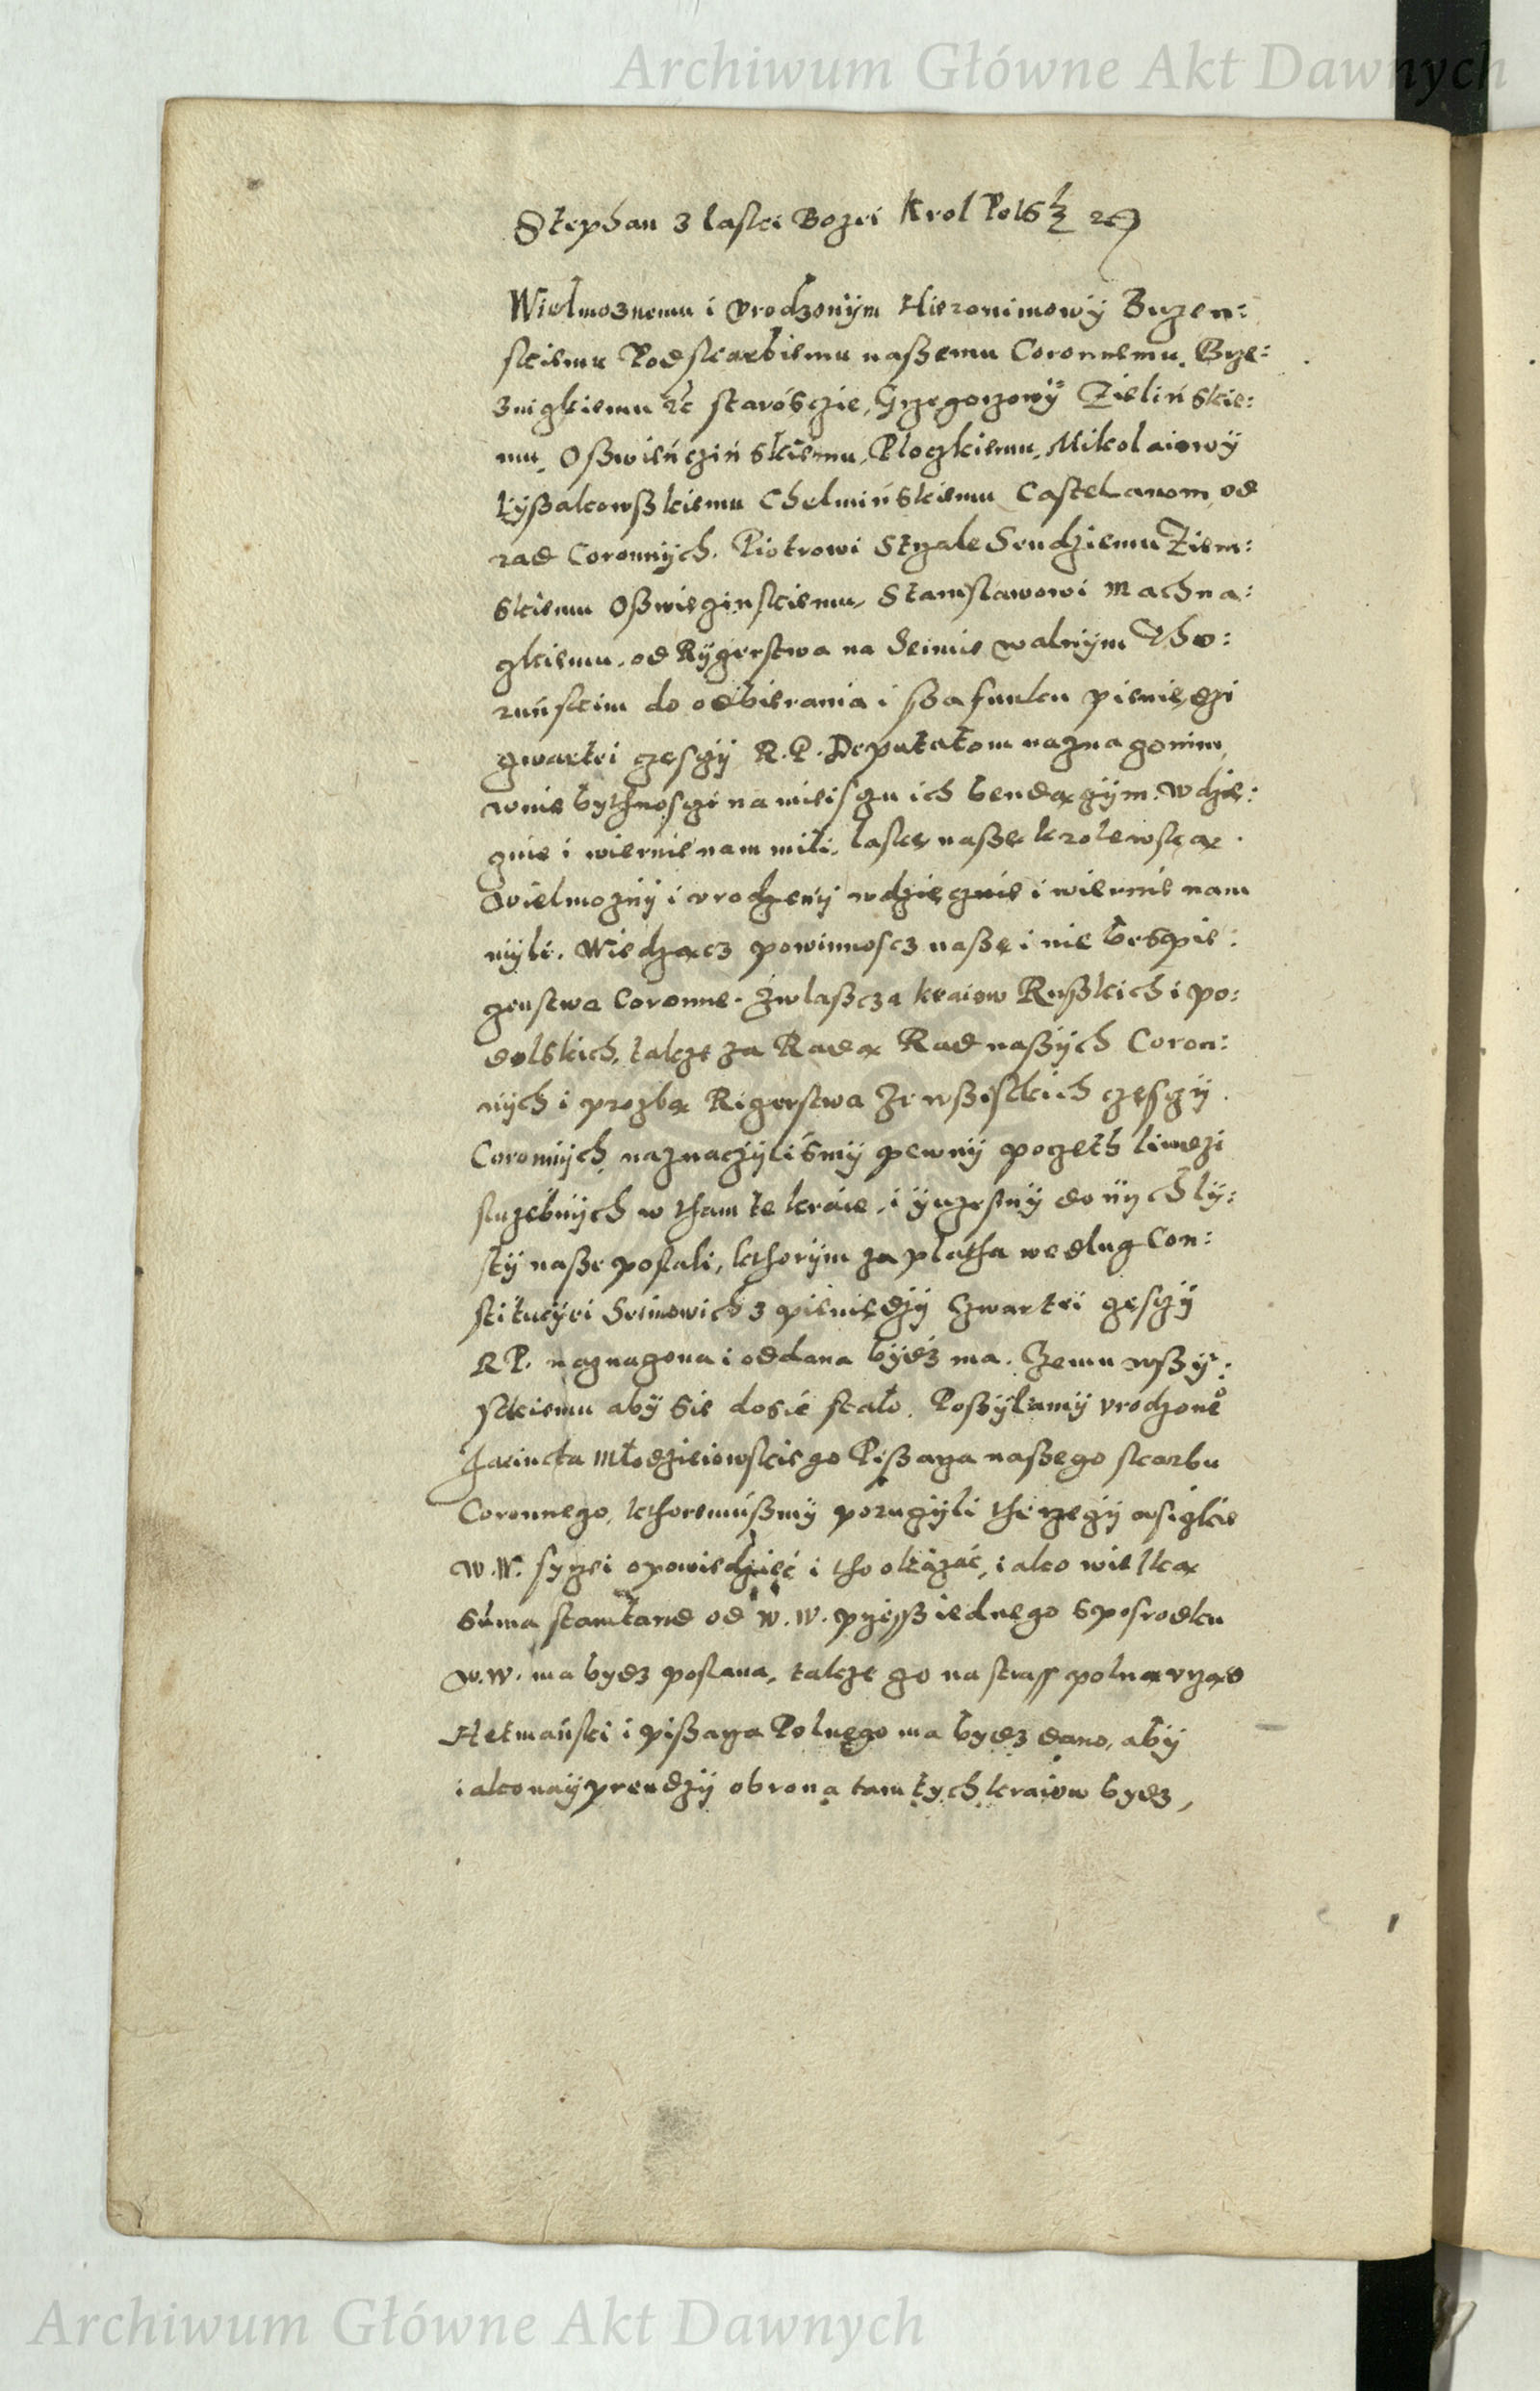 Archiwum Główne Akt Dawnych
Stephan z laski Bozei Krol Polsk
Wielmoznemu i vrodzonÿm Hieronimowÿ Buzen:
skiemu Podskarbiemu naßemu Coronnemu, Brze:
znigkiemu etc starosczie, Grzegorzowÿ Zielińskie:
mu, Oßwieńczińskiemu, Ploczkiemu, Mikolaiowÿ
Łyßakowßkiemu Chelmińskiemu Castelanom, od
rad Coronnÿch. Piotrowi Strzale Sendziemu Ziem:
skiemu Oßwieginskiemu, Stanislawowi Machna:
gkiemu, od Rÿgerstwa na Seimie walnÿm Tho:
ruńskim do odbierania i ßafunku pieniędzi
gwartei częsgÿ R. P. Deputatom naznagonim,
wnie bythnosgi na mieisgu ich bendągÿm. Wdzię:
gnie i wiernie nam mili, laskę naßę krolewską.
Wielmoznÿ i vrodzenÿ wdzięcznie i wiernie nam
mÿli. Wiedzącz powinnoscz naßę i nie bespie:
genstwa Coronne. Zwlaßcza kraiow Rußkich i po:
dolskich, takze za Radą Rad naßÿch Coron:
nÿch i prozbą Rigerstwa ze wßistkich częsgÿ
Coronnÿch, naznaczÿliśmÿ pewnÿ poczeth liudzi
sluzebnÿch w tham te kraie, i ÿuzesmÿ do nÿch lÿ:
stÿ naße poslali, kthorÿm zaplatha wedlug Con:
stitucÿei Seimowich z pieniędzÿ Czwartei gesgÿ
R P. naznagona i oddana bÿdz ma. Czemu wßÿ:
stkiemu abÿ sie dosić stało. Poßÿlamÿ vrodzone°
Jacincta Młodzieiowskiego Pißarza naßego skarbu
Coronnego, kthoremußmÿ porugÿli the rzegÿ wsigkie
W. W. syrzei opowiedzieć i tho okazać, iako wielką
suma stamtand od W. W. przeß iednego sposrodku
W. W. ma bydz poslana, takze go na straß polną vrząd
Hetmański i pißarza Polnego ma bydz dano, abÿ
iako naÿprendzÿ obrona tamtych kraiow bydz,
Archiwum Główne Akt Dawnych